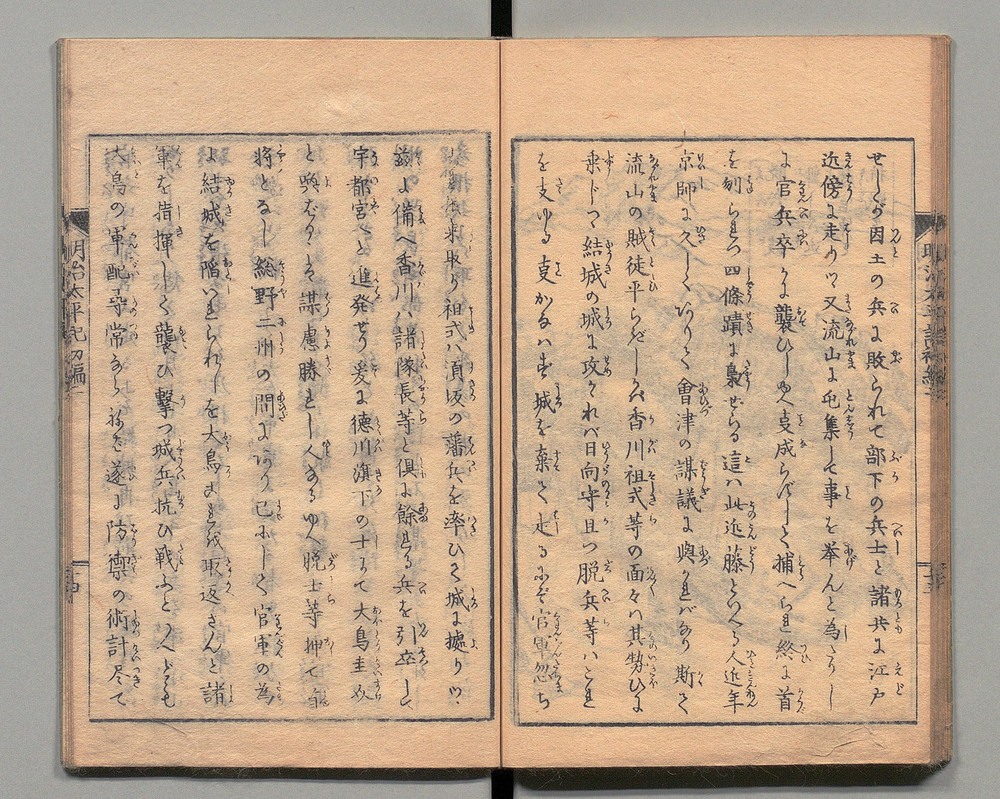 せしが因土の兵に敗られて部下の兵士と諸共に江戸
近傍に走りつ又流山に屯集して事を挙んと為さりし
に官兵卒に襲ひしゆゑ支成らずして捕へられ終に首
を刎られつ四條蹟に梟せらる這ハ此近藤といへる人近年
京師に久しくありて會津の謀議に與かれバなり斯て
流山の賊徒平らぎしかバ香川祖式等の面々ハ其勢ひに
乗じて結城の城に攻かくれバ日向守且つ脱兵等ハこれ
を支ゆる事かなハず城を棄て走るにぞ官軍忽ち
来取り祖式ハ須坂の藩兵を率ひて城に據りつ
茲に備へ香川ハ諸隊長等と倶に餘れる兵を引卒して
宇都宮へと進発せり爰に徳川旗下の士にて大鳥圭介
と喚なりしハ謀慮勝れし人なるゆゑ脱士等押て
将となし総野二州の間にあり已にして官軍の為
に結城を陥いれられしを大鳥よも取返さんと諸
軍を指揮して襲ひ撃つ城兵抗ひ戦ふといへども
大鳥の軍配尋常ならねバ遂に防禦の術計尽て
明治太平記初編